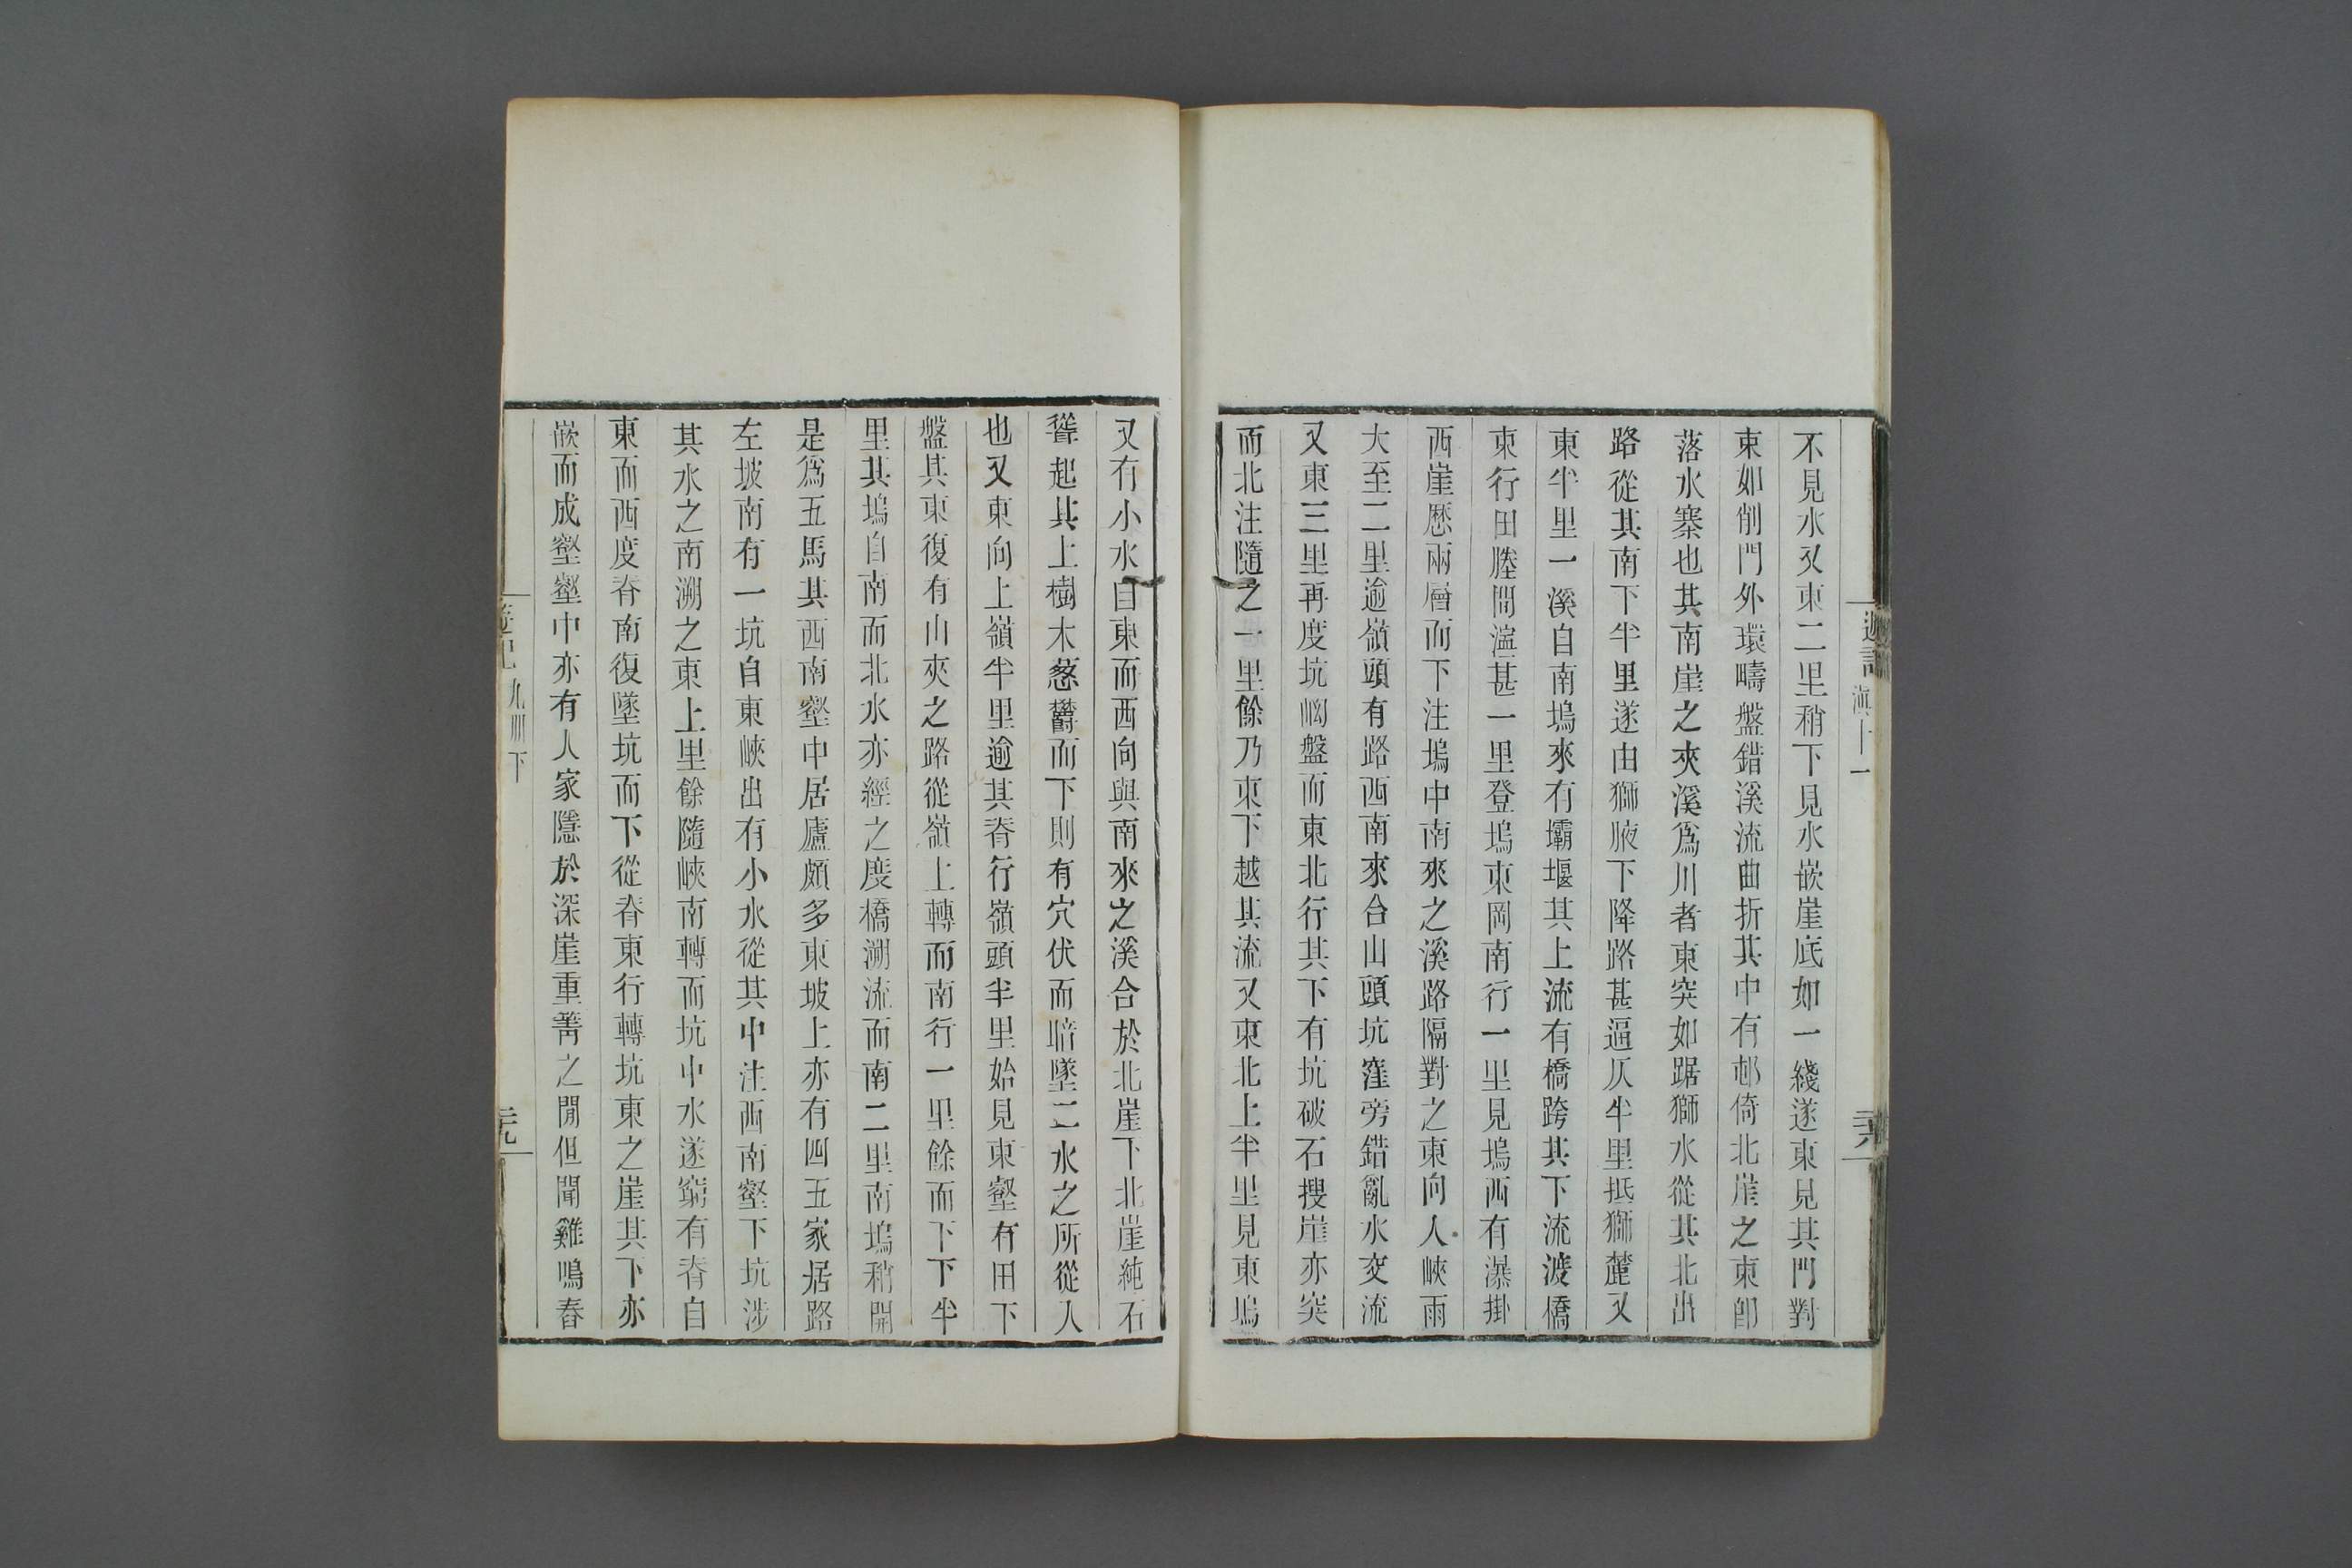 不見水又東二里稍下見水嵌崖底如一綫遂東見其門對
東如削門外環疇盤錯溪流曲折其中有邨倚北崖之東卽
落水寨也其南崖之夾溪爲川者東突如踞獅水從其北出
路從其南下半里遂由獅腋下降路甚逼仄半里抵獅麓又
東半里一溪自南塢來有壩堰其上流有橋跨其下流渡橋
東行田塍間濘甚一里登塢東岡南行一里見塢西有瀑掛
西崖歷兩層而下注塢中南來之溪路隔對之東向入峽雨
大至二里逾嶺頭有路西南來合山頭坑窪旁錯亂水交流
又東三里再度坑㘭盤而東北行其下有坑破石搜崖亦突
而北注隨之一里餘乃東下越其流又東北上半里見東塢
又有小水自東而西向與南來之溪合於北崖下北崖純石
聳起其上樹木葱鬱而下則有穴伏而暗墜二水之所從入
也又東向上嶺半里逾其脊行嶺頭半里始見東壑有田下
盤其東復有山夾之路從嶺上轉而南行一里餘而下下半
里其塢自南而北水亦經之度橋溯流而南二里南塢稍開
是爲五馬其西南壑中居廬頗多東坡上亦有四五家居路
左坡南有一坑自東峽出有小水從其中注西南壑下坑涉
其水之南溯之東上里餘隨峽南轉而坑中水遂窮有脊自
東而西度脊南復墜坑而下從脊東行轉坑東之崖其下亦
嵌而成壑壑中亦有人家隱於深崖重箐之閒但聞雞鳴舂